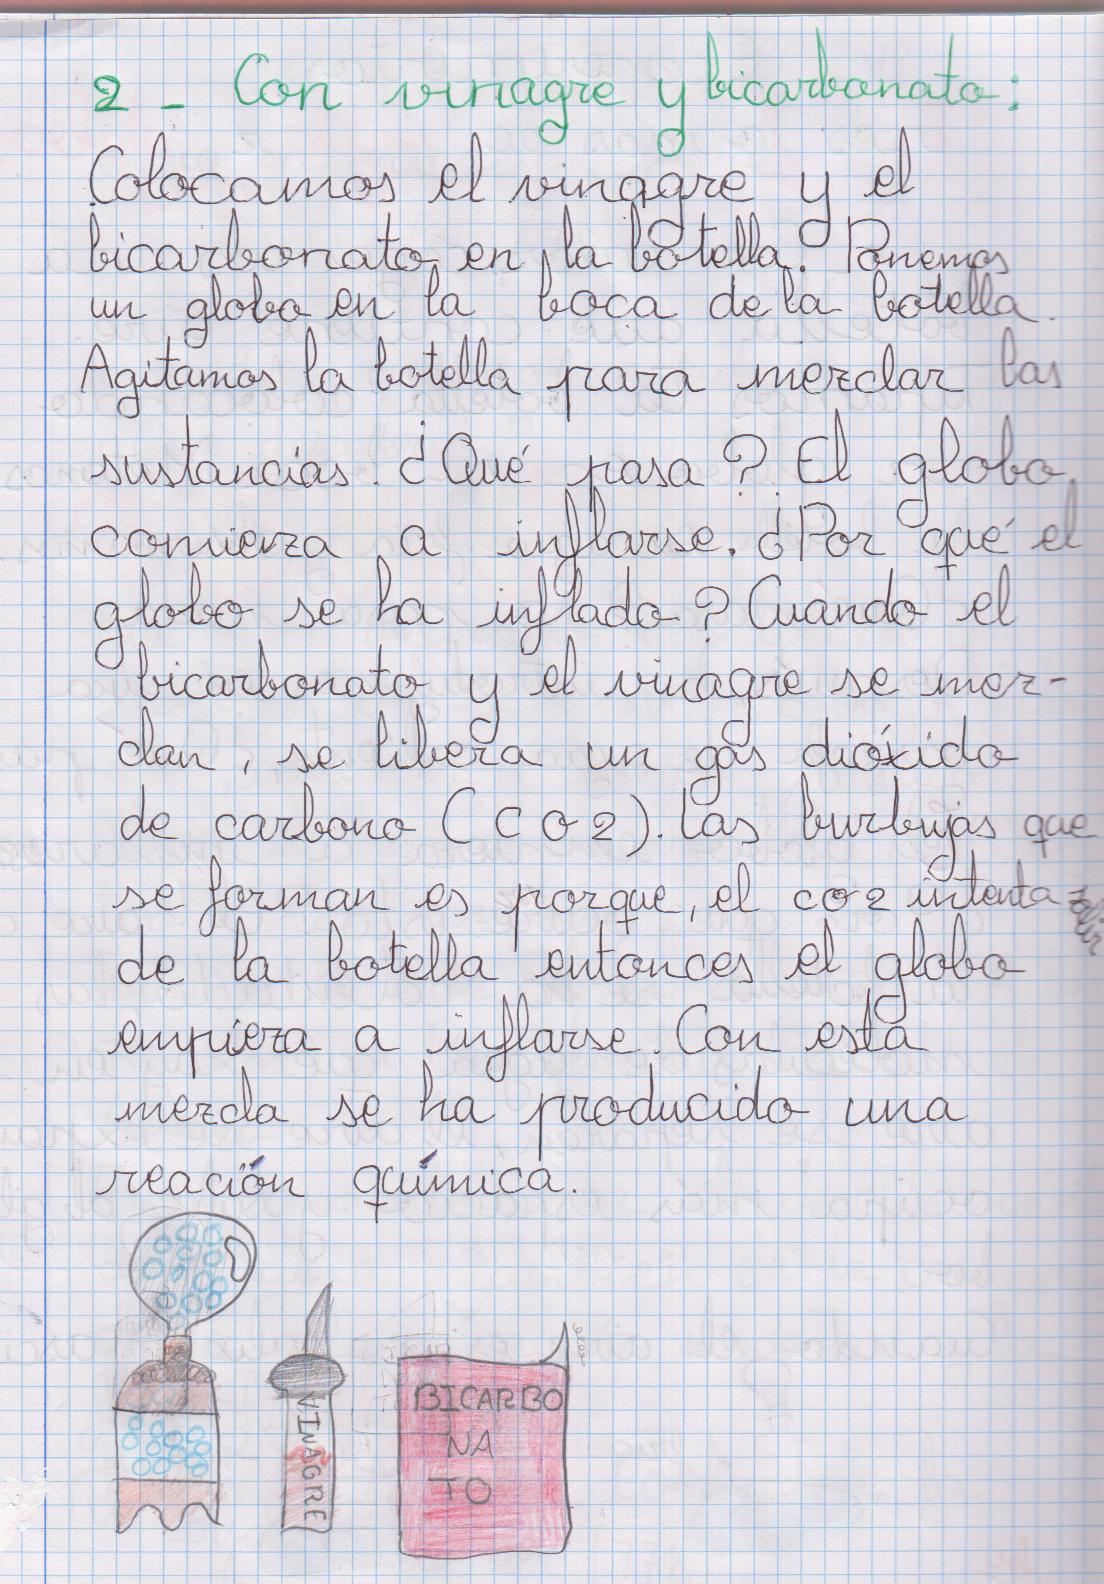 2 - Con vinagre y bicarbonato:
Colocamos el vinagre y el
bicarbonato en la botella. Ponemos
un globo en la boca de la botella.
Agitamos la botella para mezclar las
sustancias. ¿Qué pasa? El globo
comienza a inflarse. ¿Por qué el
globo se ha inflado? Cuando el
bicarbonato y el vinagre se mez-
clan, se libera un gas dióxido
de carbono (CO2). Las burbujas que
se forman es porque, el CO2 intenta salir
de la botella entonces el globo
empieza a inflarse. Con esta
mezcla se ha producido una
reación química.
VINAGRE
BICARBO
NA
TO